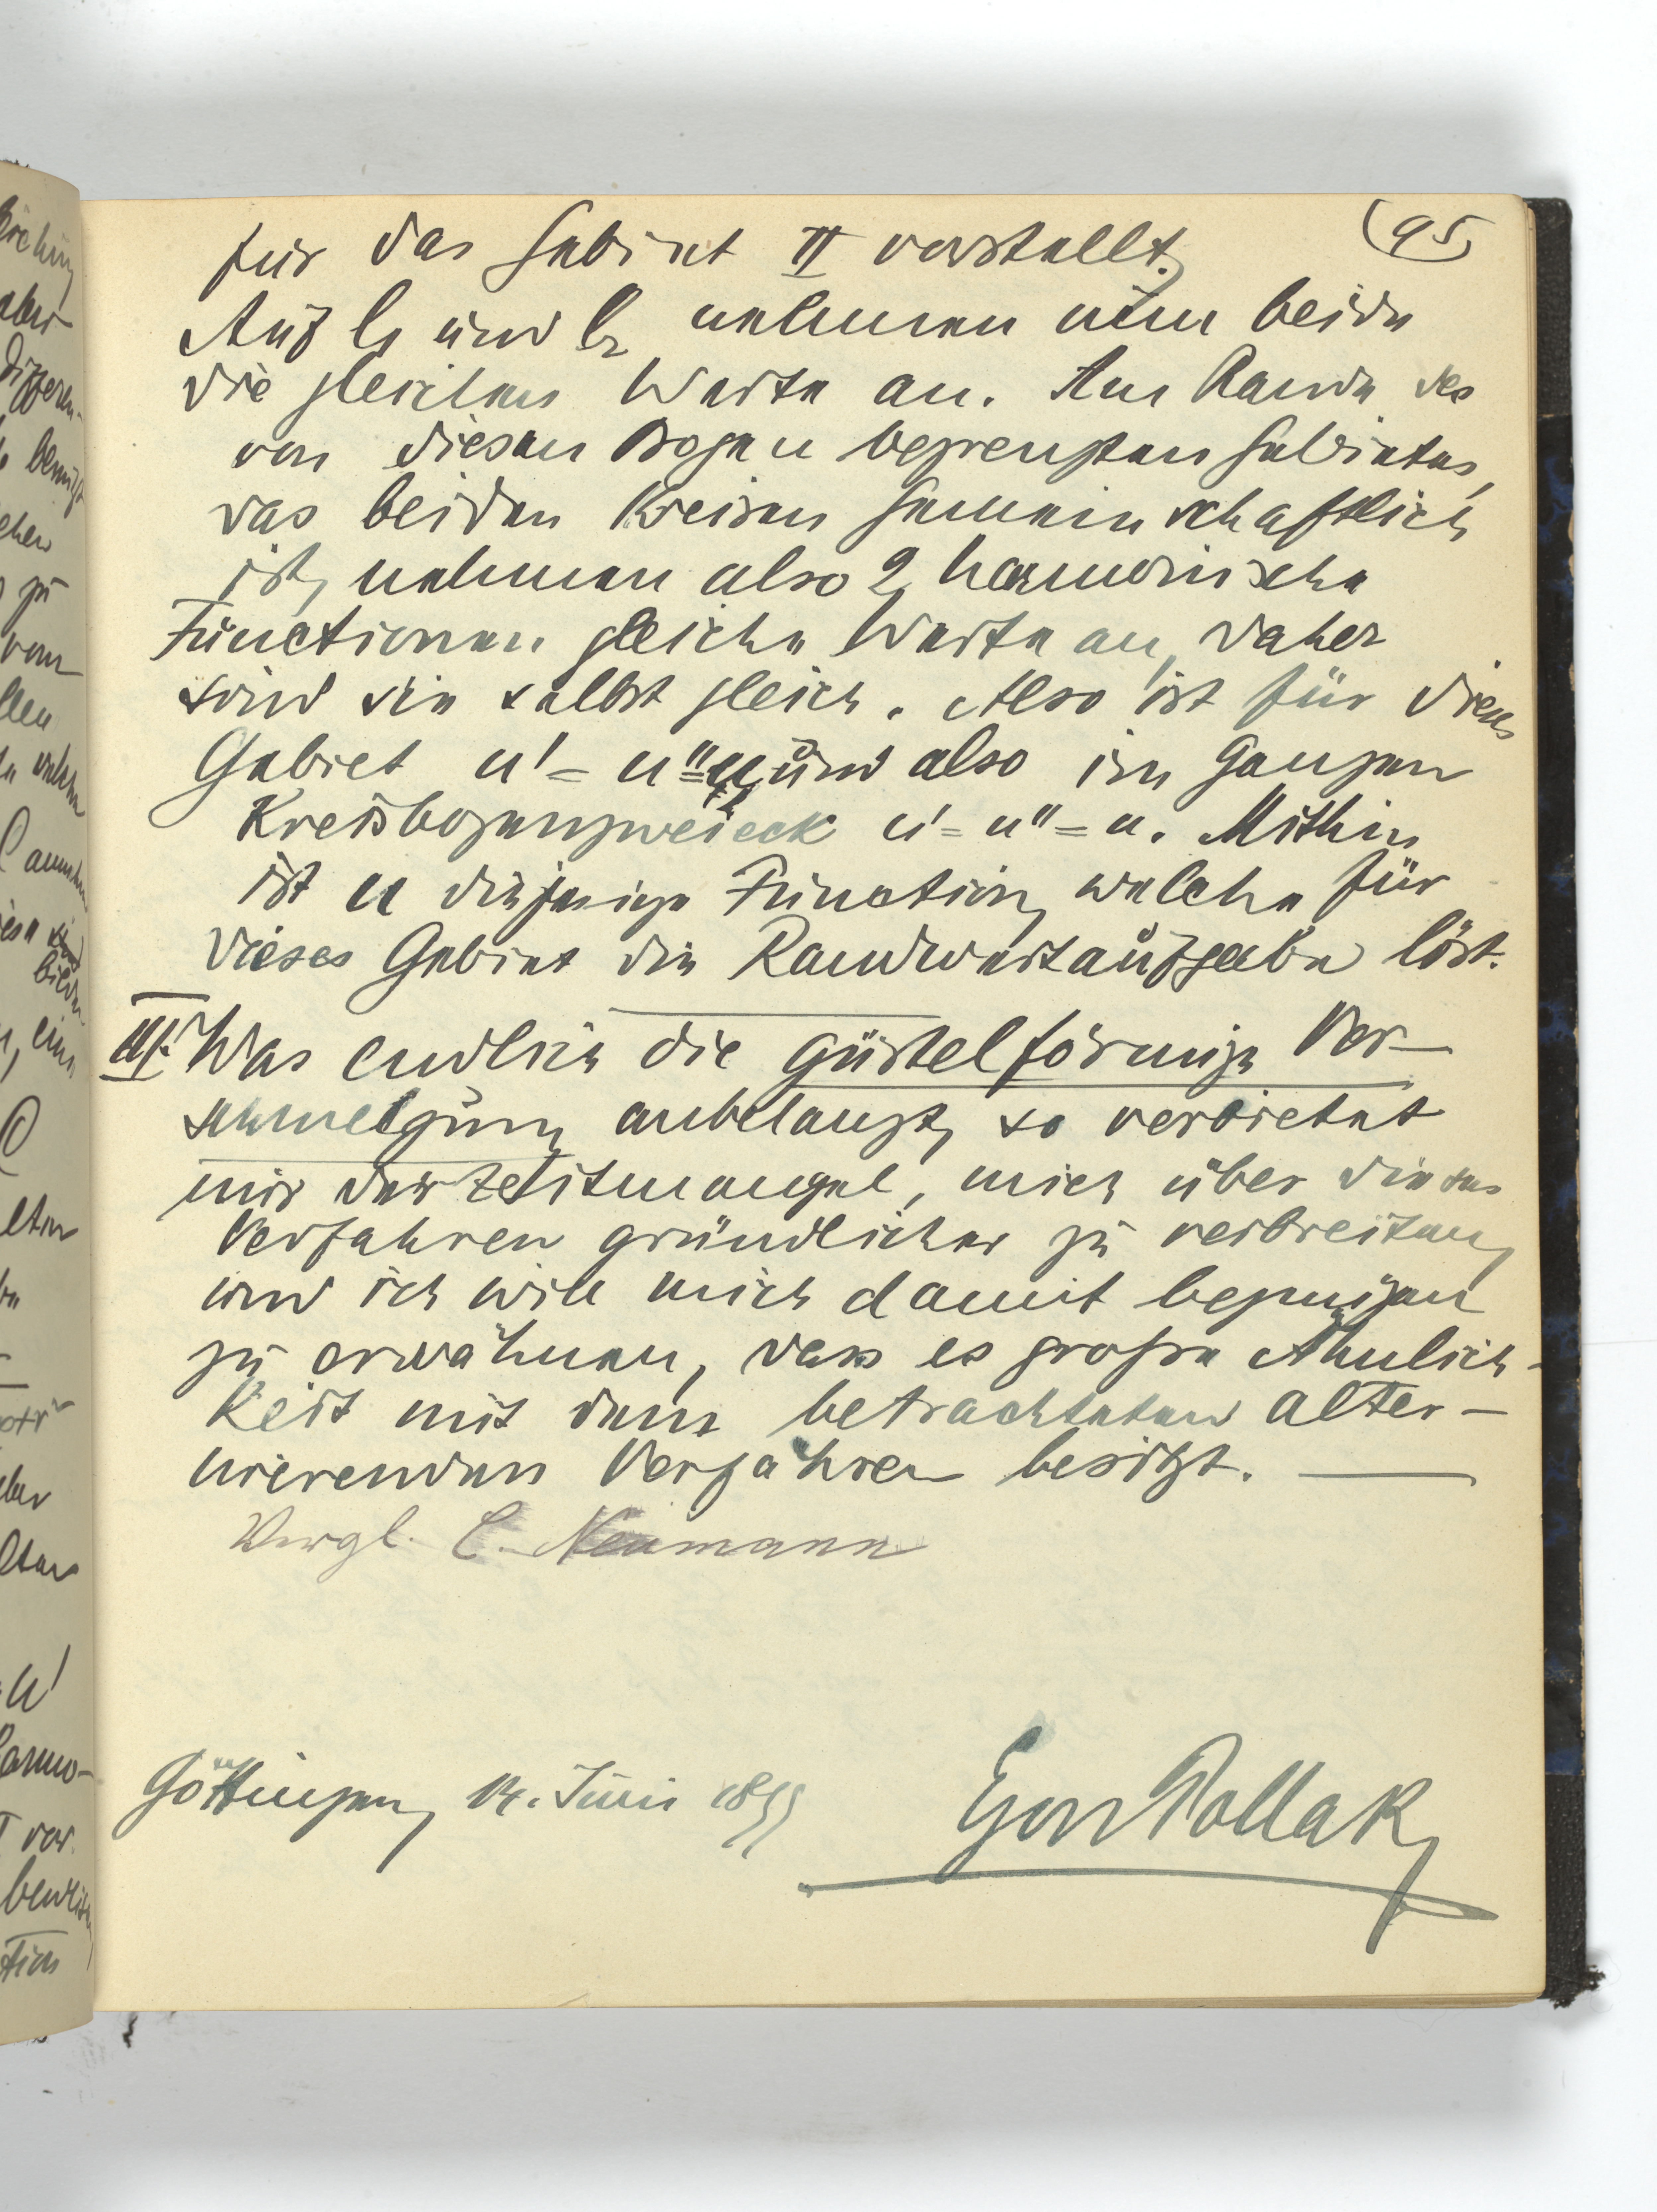 (95
für das Gebiet II vorstellt.
Auf l₁ und l₂ nehmen nun beide
die gleichen Werte an. Am Rande des
von diesen Bogen begrenzten Gebietes,
das beiden Kreisen gemeinschaftlich
ist, nehmen also 2 harmonische
Functionen gleiche Werte an, daher
sind sie selbst gleich. Also ist für dieses
Gebiet u' = u'' = u und also im Ganzen
Kreisbogenzweieck u' = u'' = u. Mithin
ist u diejenige Function, welche für
dieses Gebiet die Randwertaufgabe löst.
III. Was endlich die gürtelförmige Ver-
schmelzung anbelangt, so verbietet
mir der Zeitmangel, mich über dieses
Verfahren gründlicher zu verbreiten,
und ich will mich damit begnügen
zu erwähnen, dass es große Ähnlich-
keit mit dem betrachteten alter-
nierenden Verfahren besitzt. —
Vergl. C. Neumann
Göttingen, 14. Juni 1899
Egon Pollak